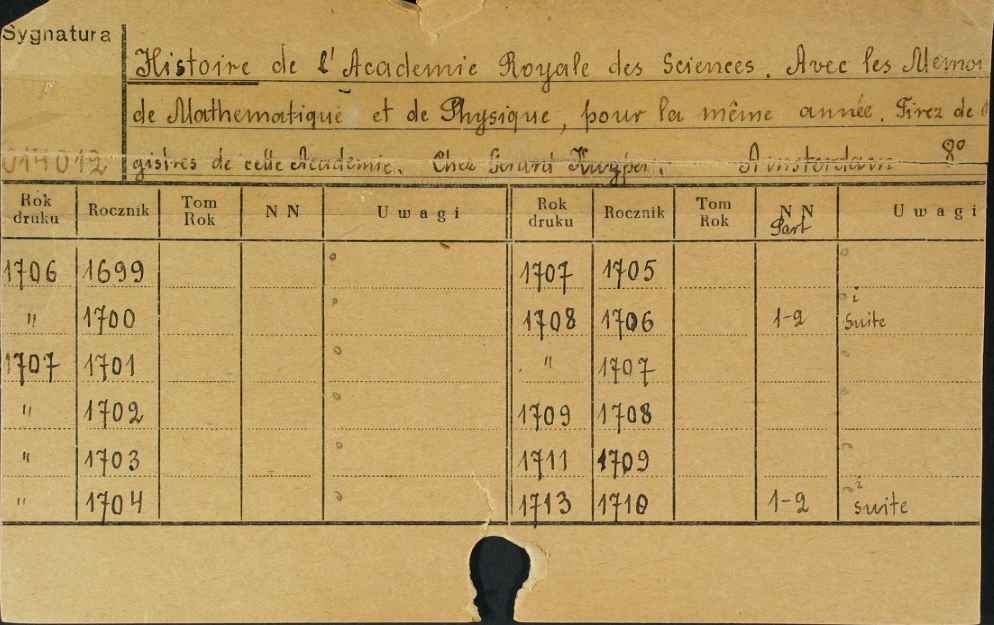 Sygnatura
Histoire de l'Academie Royale des Sciences. Avec les Memoi
de Mathematique et de Physique, pour la même année. Tirez de
014012 gistres de cette Academie. Chez Gerard Kuyper. Amsterdam 8°
Rok druku Rocznik Tom Rok NN Uwagi Rok druku Rocznik Tom Rok NN Part Uwagi
1706 1699 1707 1705
" 1700 1708 1706 1-2 i suite
1707 1701 " 1707
" 1702 1709 1708
" 1703 1711 1709
" 1704 1713 1710 1-2 i suite